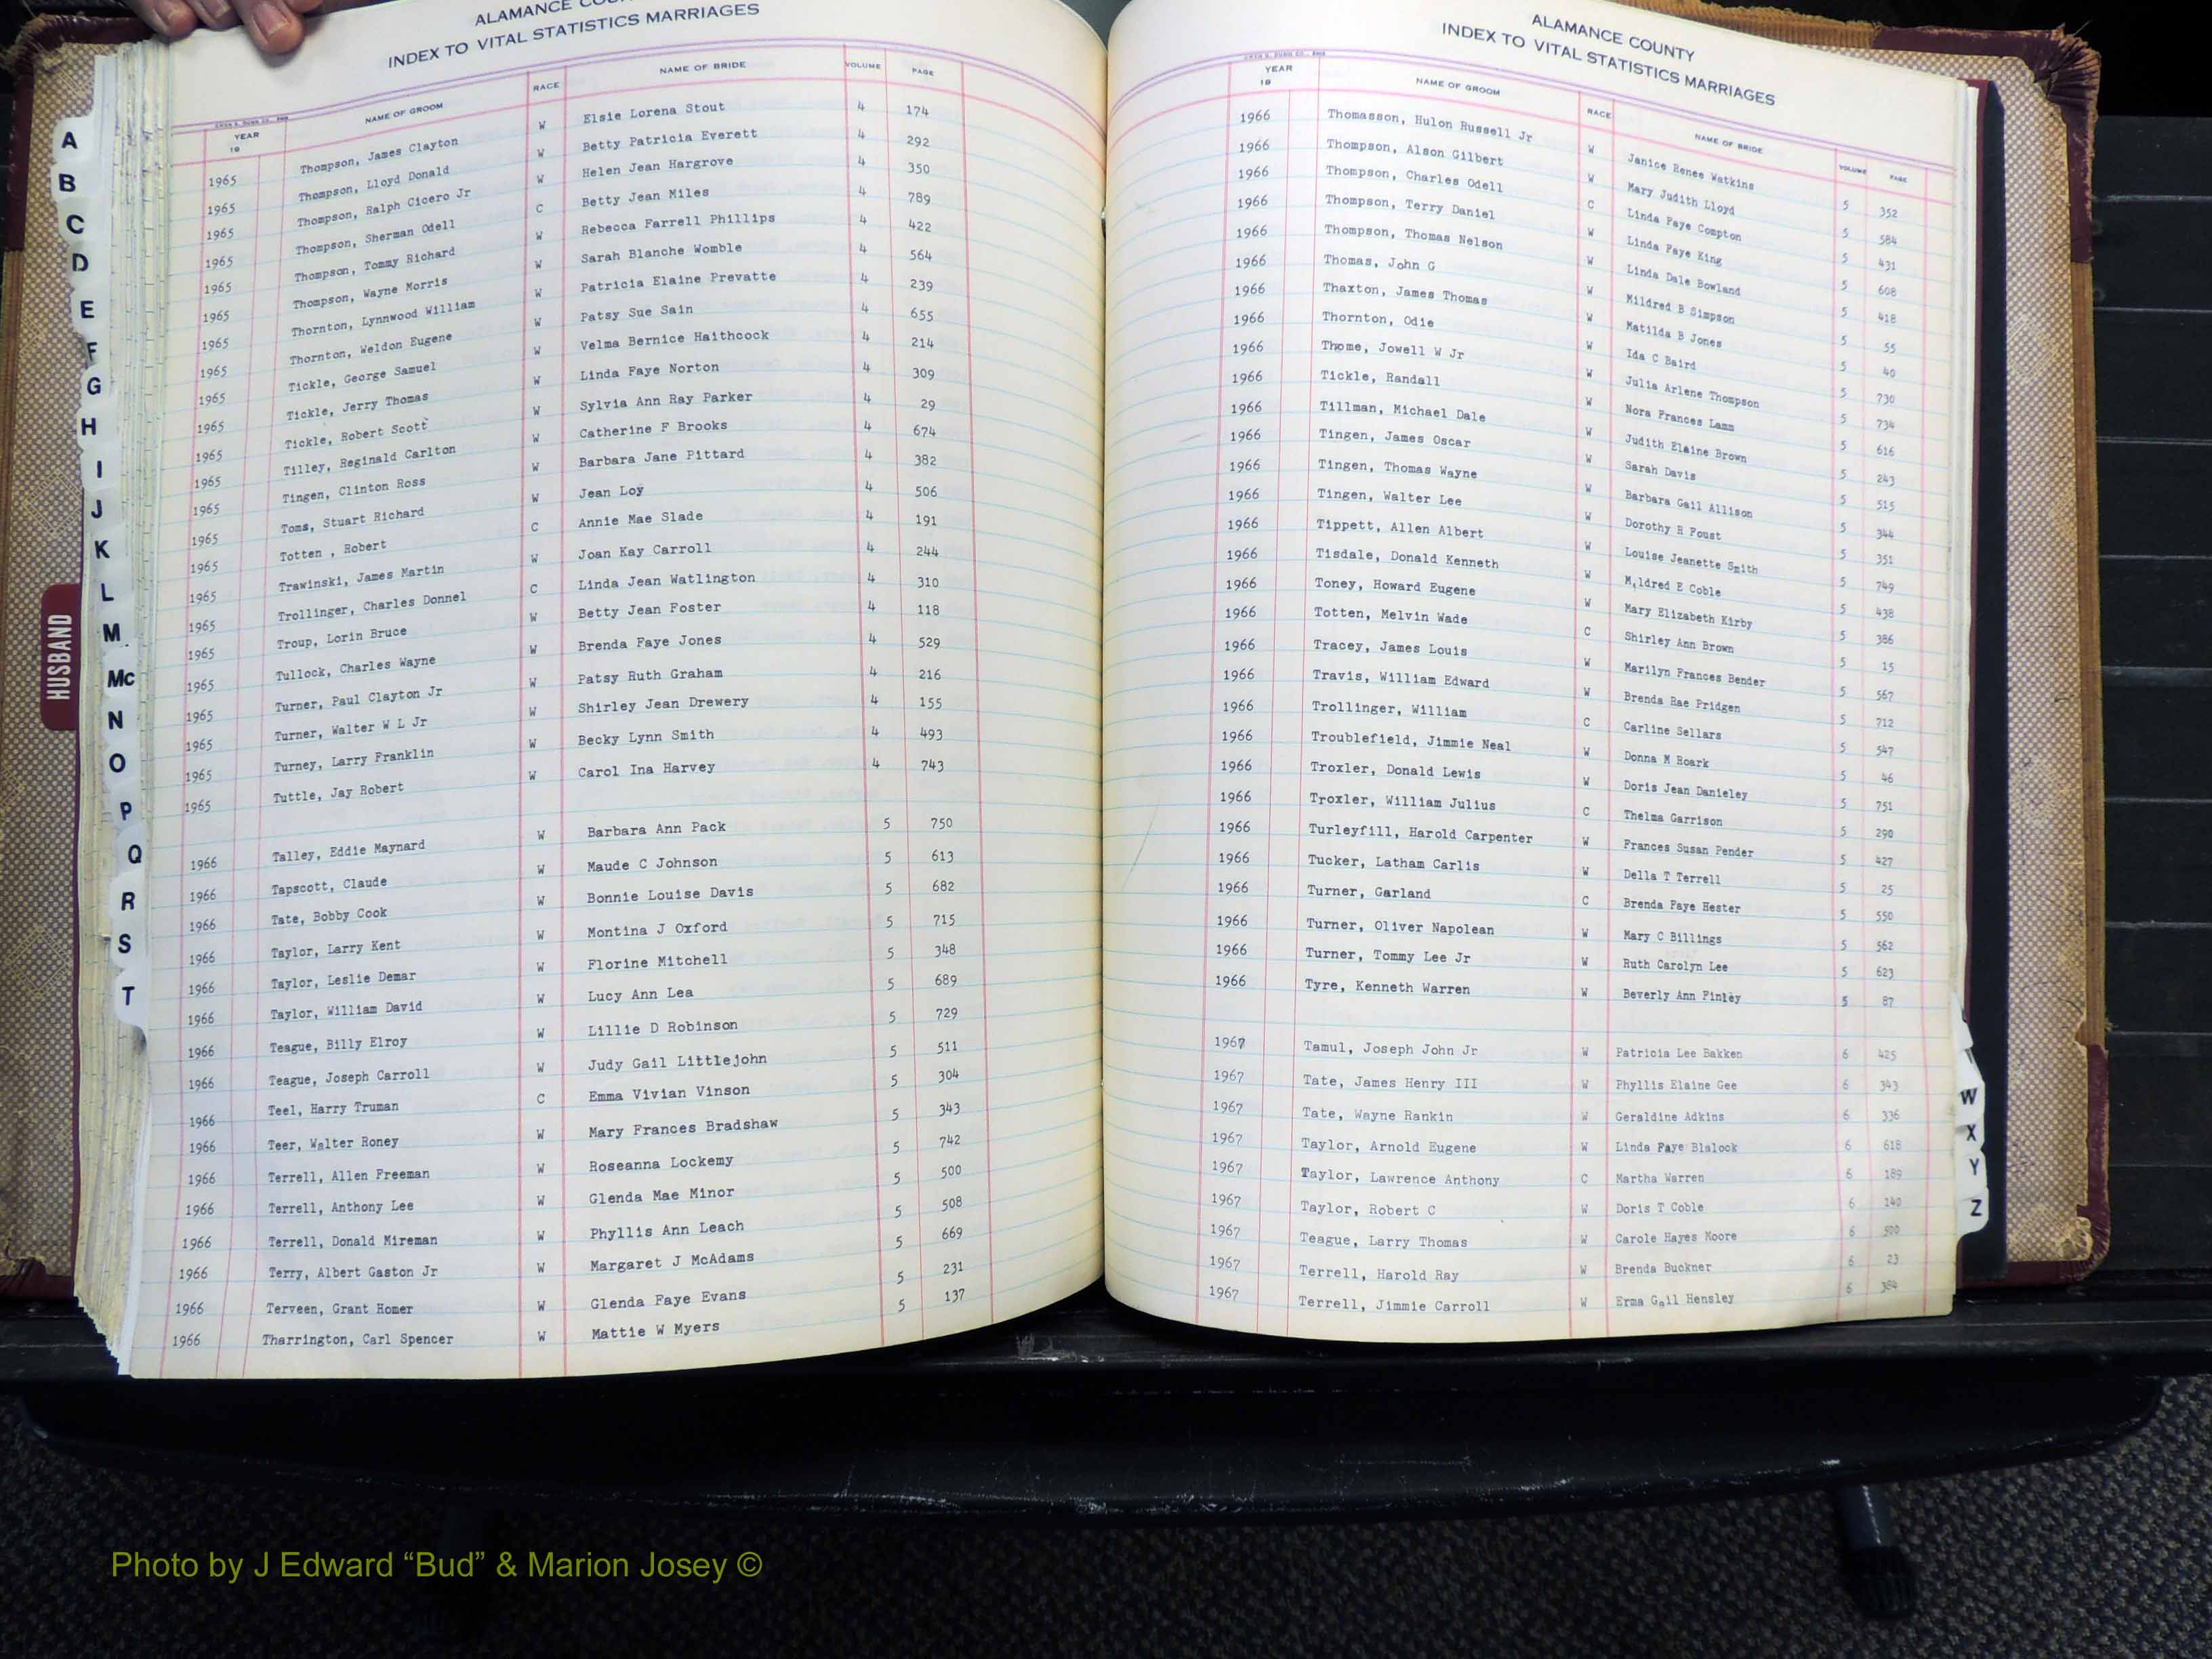 ALAMANCE COUN
INDEX TO VITAL STATISTICS MARRIAGES
YEAR 19 NAME OF GROOM RACE NAME OF BRIDE VOLUME PAGE
1965 Thompson, James Clayton W Elsie Lorena Stout 4 174
1965 Thompson, Lloyd Donald W Betty Patricia Everett 4 292
1965 Thompson, Ralph Cicero Jr W Helen Jean Hargrove 4 350
1965 Thompson, Sherman Odell C Betty Jean Miles 4 789
1965 Thompson, Tommy Richard W Rebecca Farrell Phillips 4 422
1965 Thompson, Wayne Morris W Sarah Blanche Womble 4 564
1965 Thornton, Lynnwood William W Patricia Elaine Prevatte 4 239
1965 Thornton, Weldon Eugene W Patsy Sue Sain 4 655
1965 Tickle, George Samuel W Velma Bernice Haithcock 4 214
1965 Tickle, Jerry Thomas W Linda Faye Norton 4 309
1965 Tickle, Robert Scott W Sylvia Ann Ray Parker 4 29
1965 Tilley, Reginald Carlton W Catherine F Brooks 4 674
1965 Tingen, Clinton Ross W Barbara Jane Pittard 4 382
1965 Toms, Stuart Richard W Jean Loy 4 506
1965 Totten , Robert C Annie Mae Slade 4 191
1965 Trawinski, James Martin W Joan Kay Carroll 4 244
1965 Trollinger, Charles Donnel C Linda Jean Watlington 4 310
1965 Troup, Lorin Bruce W Betty Jean Foster 4 118
1965 Tullock, Charles Wayne W Brenda Faye Jones 4 529
1965 Turner, Paul Clayton Jr W Patsy Ruth Graham 4 216
1965 Turner, Walter W L Jr W Shirley Jean Drewery 4 155
1965 Turney, Larry Franklin W Becky Lynn Smith 4 493
1965 Tuttle, Jay Robert W Carol Ina Harvey 4 743
1966 Talley, Eddie Maynard W Barbara Ann Pack 5 750
1966 Tapscott, Claude W Maude C Johnson 5 613
1966 Tate, Bobby Cook W Bonnie Louise Davis 5 682
1966 Taylor, Larry Kent W Montina J Oxford 5 715
1966 Taylor, Leslie Demar W Florine Mitchell 5 348
1966 Taylor, William David W Lucy Ann Lea 5 689
1966 Teague, Billy Elroy W Lillie D Robinson 5 729
1966 Teague, Joseph Carroll W Judy Gail Littlejohn 5 511
1966 Teel, Harry Truman C Emma Vivian Vinson 5 304
1966 Teer, Walter Roney W Mary Frances Bradshaw 5 343
1966 Terrell, Allen Freeman W Roseanna Lockemy 5 742
1966 Terrell, Anthony Lee W Glenda Mae Minor 5 500
1966 Terrell, Donald Mireman W Phyllis Ann Leach 5 508
1966 Terry, Albert Gaston Jr W Margaret J McAdams 5 669
1966 Terveen, Grant Homer W Glenda Faye Evans 5 231
1966 Tharrington, Carl Spencer W Mattie W Myers 5 137
A
B
C
D
E
F
G
H
I
J
K
L
M
Mc
N
O
P
Q
R
S
T
HUSBAND
ALAMANCE COUNTY
INDEX TO VITAL STATISTICS MARRIAGES
YEAR 19 NAME OF GROOM RACE NAME OF BRIDE VOLUME PAGE
1966 Thomasson, Hulon Russell Jr W Janice Renee Watkins 5 352
1966 Thompson, Alson Gilbert W Mary Judith Lloyd 5 584
1966 Thompson, Charles Odell C Linda Faye Compton 5 431
1966 Thompson, Terry Daniel W Linda Faye King 5 608
1966 Thompson, Thomas Nelson W Linda Dale Bowland 5 418
1966 Thomas, John G W Mildred B Simpson 5 55
1966 Thaxton, James Thomas W Matilda B Jones 5 40
1966 Thornton, Odie W Ida C Baird 5 730
1966 Thome, Jowell W Jr W Julia Arlene Thompson 5 734
1966 Tickle, Randall W Nora Frances Lamm 5 616
1966 Tillman, Michael Dale W Judith Elaine Brown 5 243
1966 Tingen, James Oscar W Sarah Davis 5 515
1966 Tingen, Thomas Wayne W Barbara Gail Allison 5 344
1966 Tingen, Walter Lee W Dorothy R Foust 5 351
1966 Tippett, Allen Albert W Louise Jeanette Smith 5 749
1966 Tisdale, Donald Kenneth W Mildred E Coble 5 438
1966 Toney, Howard Eugene W Mary Elizabeth Kirby 5 386
1966 Totten, Melvin Wade C Shirley Ann Brown 5 15
1966 Tracey, James Louis W Marilyn Frances Bender 5 567
1966 Travis, William Edward W Brenda Rae Pridgen 5 712
1966 Trollinger, William C Carline Sellars 5 547
1966 Troublefield, Jimmie Neal W Donna M Roark 5 46
1966 Troxler, Donald Lewis W Doris Jean Danieley 5 751
1966 Troxler, William Julius C Thelma Garrison 5 290
1966 Turleyfill, Harold Carpenter W Frances Susan Pender 5 427
1966 Tucker, Latham Carlis W Della T Terrell 5 25
1966 Turner, Garland C Brenda Faye Hester 5 550
1966 Turner, Oliver Napolean W Mary C Billings 5 562
1966 Turner, Tommy Lee Jr W Ruth Carolyn Lee 5 623
1966 Tyre, Kenneth Warren W Beverly Ann Finley 5 87
1967 Tamul, Joseph John Jr W Patricia Lee Bakken 6 425
1967 Tate, James Henry III W Phyllis Elaine Gee 6 343
1967 Tate, Wayne Rankin W Geraldine Adkins 6 336
1967 Taylor, Arnold Eugene W Linda Faye Blalock 6 618
1967 Taylor, Lawrence Anthony C Martha Warren 6 189
1967 Taylor, Robert C W Doris T Coble 6 140
1967 Teague, Larry Thomas W Carole Hayes Moore 6 500
1967 Terrell, Harold Ray W Brenda Buckner 6 23
1967 Terrell, Jimmie Carroll W Erma Gail Hensley 6 384
W
X
Y
Z
Photo by J Edward “Bud” & Marion Josey ©